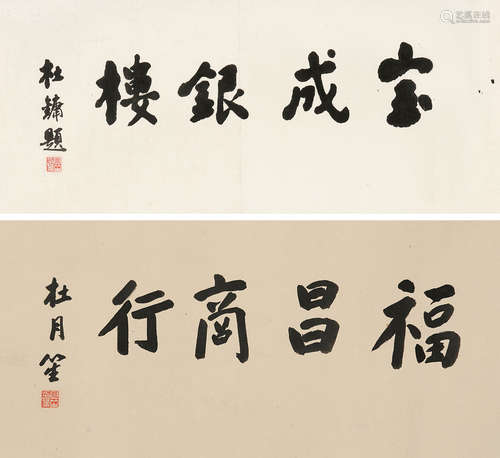 宝成銀樓
杜鏞題
福昌商行
杜月笙